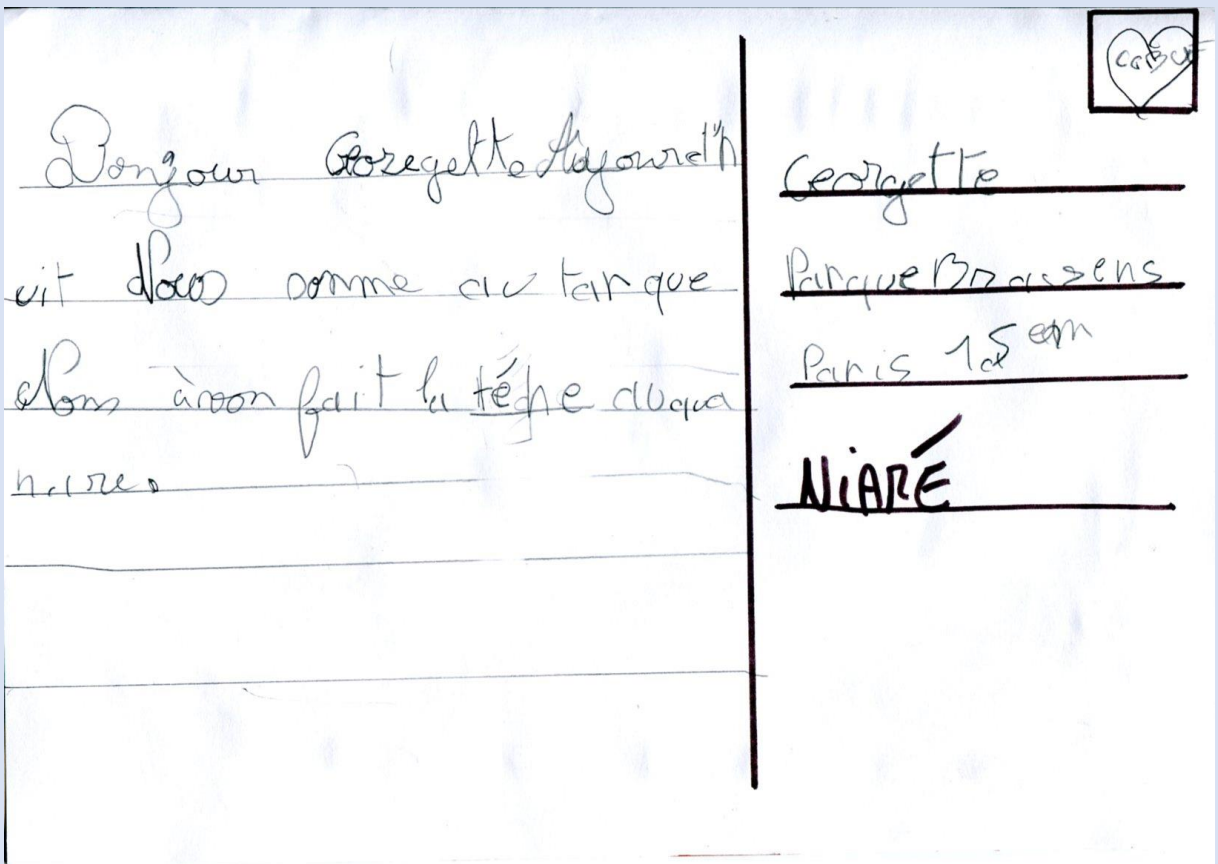 Bonjour Georegette Aujourd'h
uit Nous somme au tarque
Nous àvon fait la têche auqua
nare.
Georgette
ParqueBrassens
Paris 15 em
NiARÉ